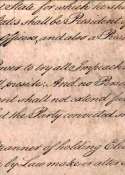 t State for which he sha
tates shall be President of
Officers, and also a Presi
ower to try all Impeach
preside: And no Perso
nt shall not extend fur
t the Party convicted sh
anner of holding Elec
by Law make or alter